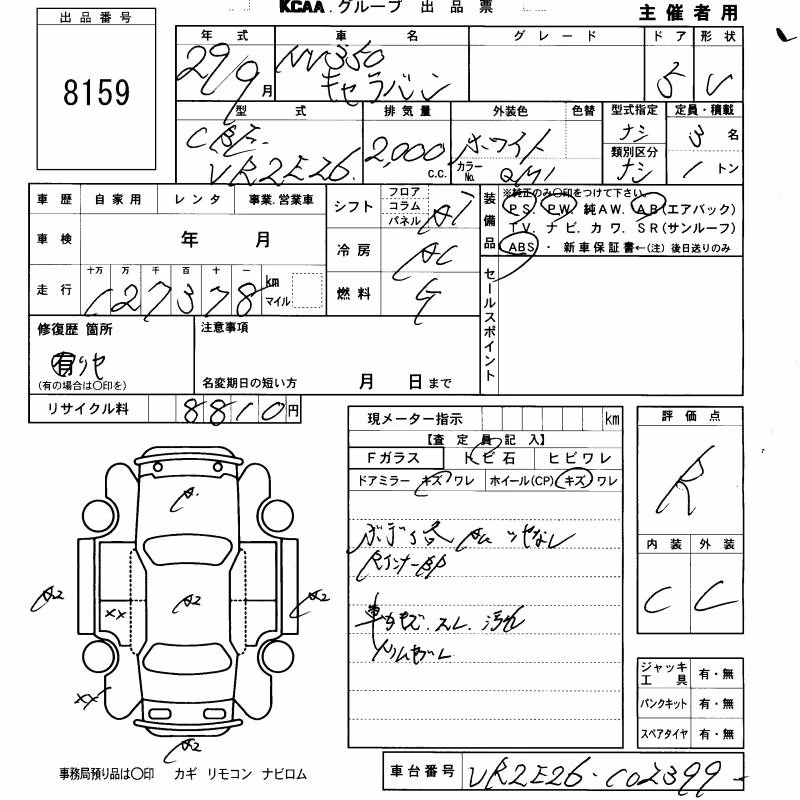 KCAA.グループ 出品票
主催者用
出品番号
8159
年式 車名 グレード ドア 形状
29/9月 NV350 キャラバン 5 V
型式 排気量 外装色 色替 型式指定 定員・積載
CBF- VR2E26 2,000 C.C. ホワイト カラーNo. QM1 ナシ 3名
類別区分 ナシ 1トン
車歴 自家用 レンタ 事業.営業車
シフト フロア コラム パネル AT
装備品 ※純正のみ〇印をつけて下さい。
P S. P.W. 純A W. A B (エアバック)
T V. ナビ. カワ. S R (サンルーフ)
ABS ・ 新車保証書←(注) 後日送りのみ
車検 年 月
冷房 AC
走行 十万 万 千 百 十 一
127378 km マイル
燃料 G
セールスポイント
修復歴 箇所
有 リセ
(有の場合は〇印を)
注意事項
名変期日の短い方 月 日まで
リサイクル料 8810円
現メーター指示 km
評価点
R
【査定員記入】
Fガラス トビ石 ヒビワレ
ドアミラー キズ ワレ ホイール(CP) キズ ワレ
内装 外装
C C
ツヤなし
Rインナー
スレ. 汚れ
A
A2
A2
A2
A2
XX
XX
ジャッキ工具 有・無
パンクキット 有・無
スペアタイヤ 有・無
事務局預り品は〇印 カギ リモコン ナビロム
車台番号 VR2E26-002399